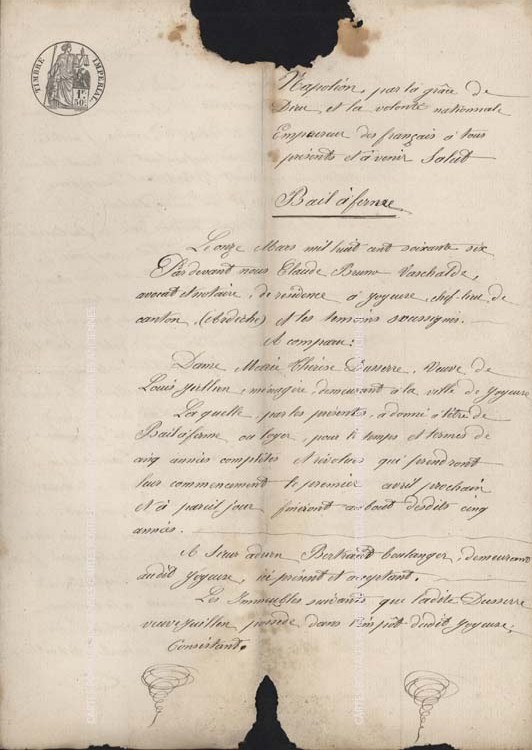 TIMBRE IMPÉRIAL
1F
50C
Napoléon, par la grâce de
Dieu et la volonté nationnale
Empereur des français à tous
présents et à venir Salut
Bail à ferme
Le onze Mars mil huit cent soixante six
Pardevant nous Claude Bruno Vaschalde,
avocat et notaire, de residence à Joyeuse, chef-lieu de
canton, (Ardèche) et les temoins soussignés.
A comparu:
Dame Marie Thérèse Dusserre, Veuve de
Louis Juillen, ménagère, demeurant à la ville de Joyeuse
La quelle, par les présentes, a donné à titre de
Bail à ferme ou loyer, pour le temps et termes de
cinq années complètes et révolues qui prendront
leur commencement le premier avril prochain
et à pareil jour finiront au bout desdits cinq
années.
A Sieur Bertrand boulanger, demeurant
audit Joyeuse, ici présent et acceptant.
Les Immeubles suivants que ladite Dusserre
veuve Juillen possède dans l'impôt dudit Joyeuse,
Consistant.